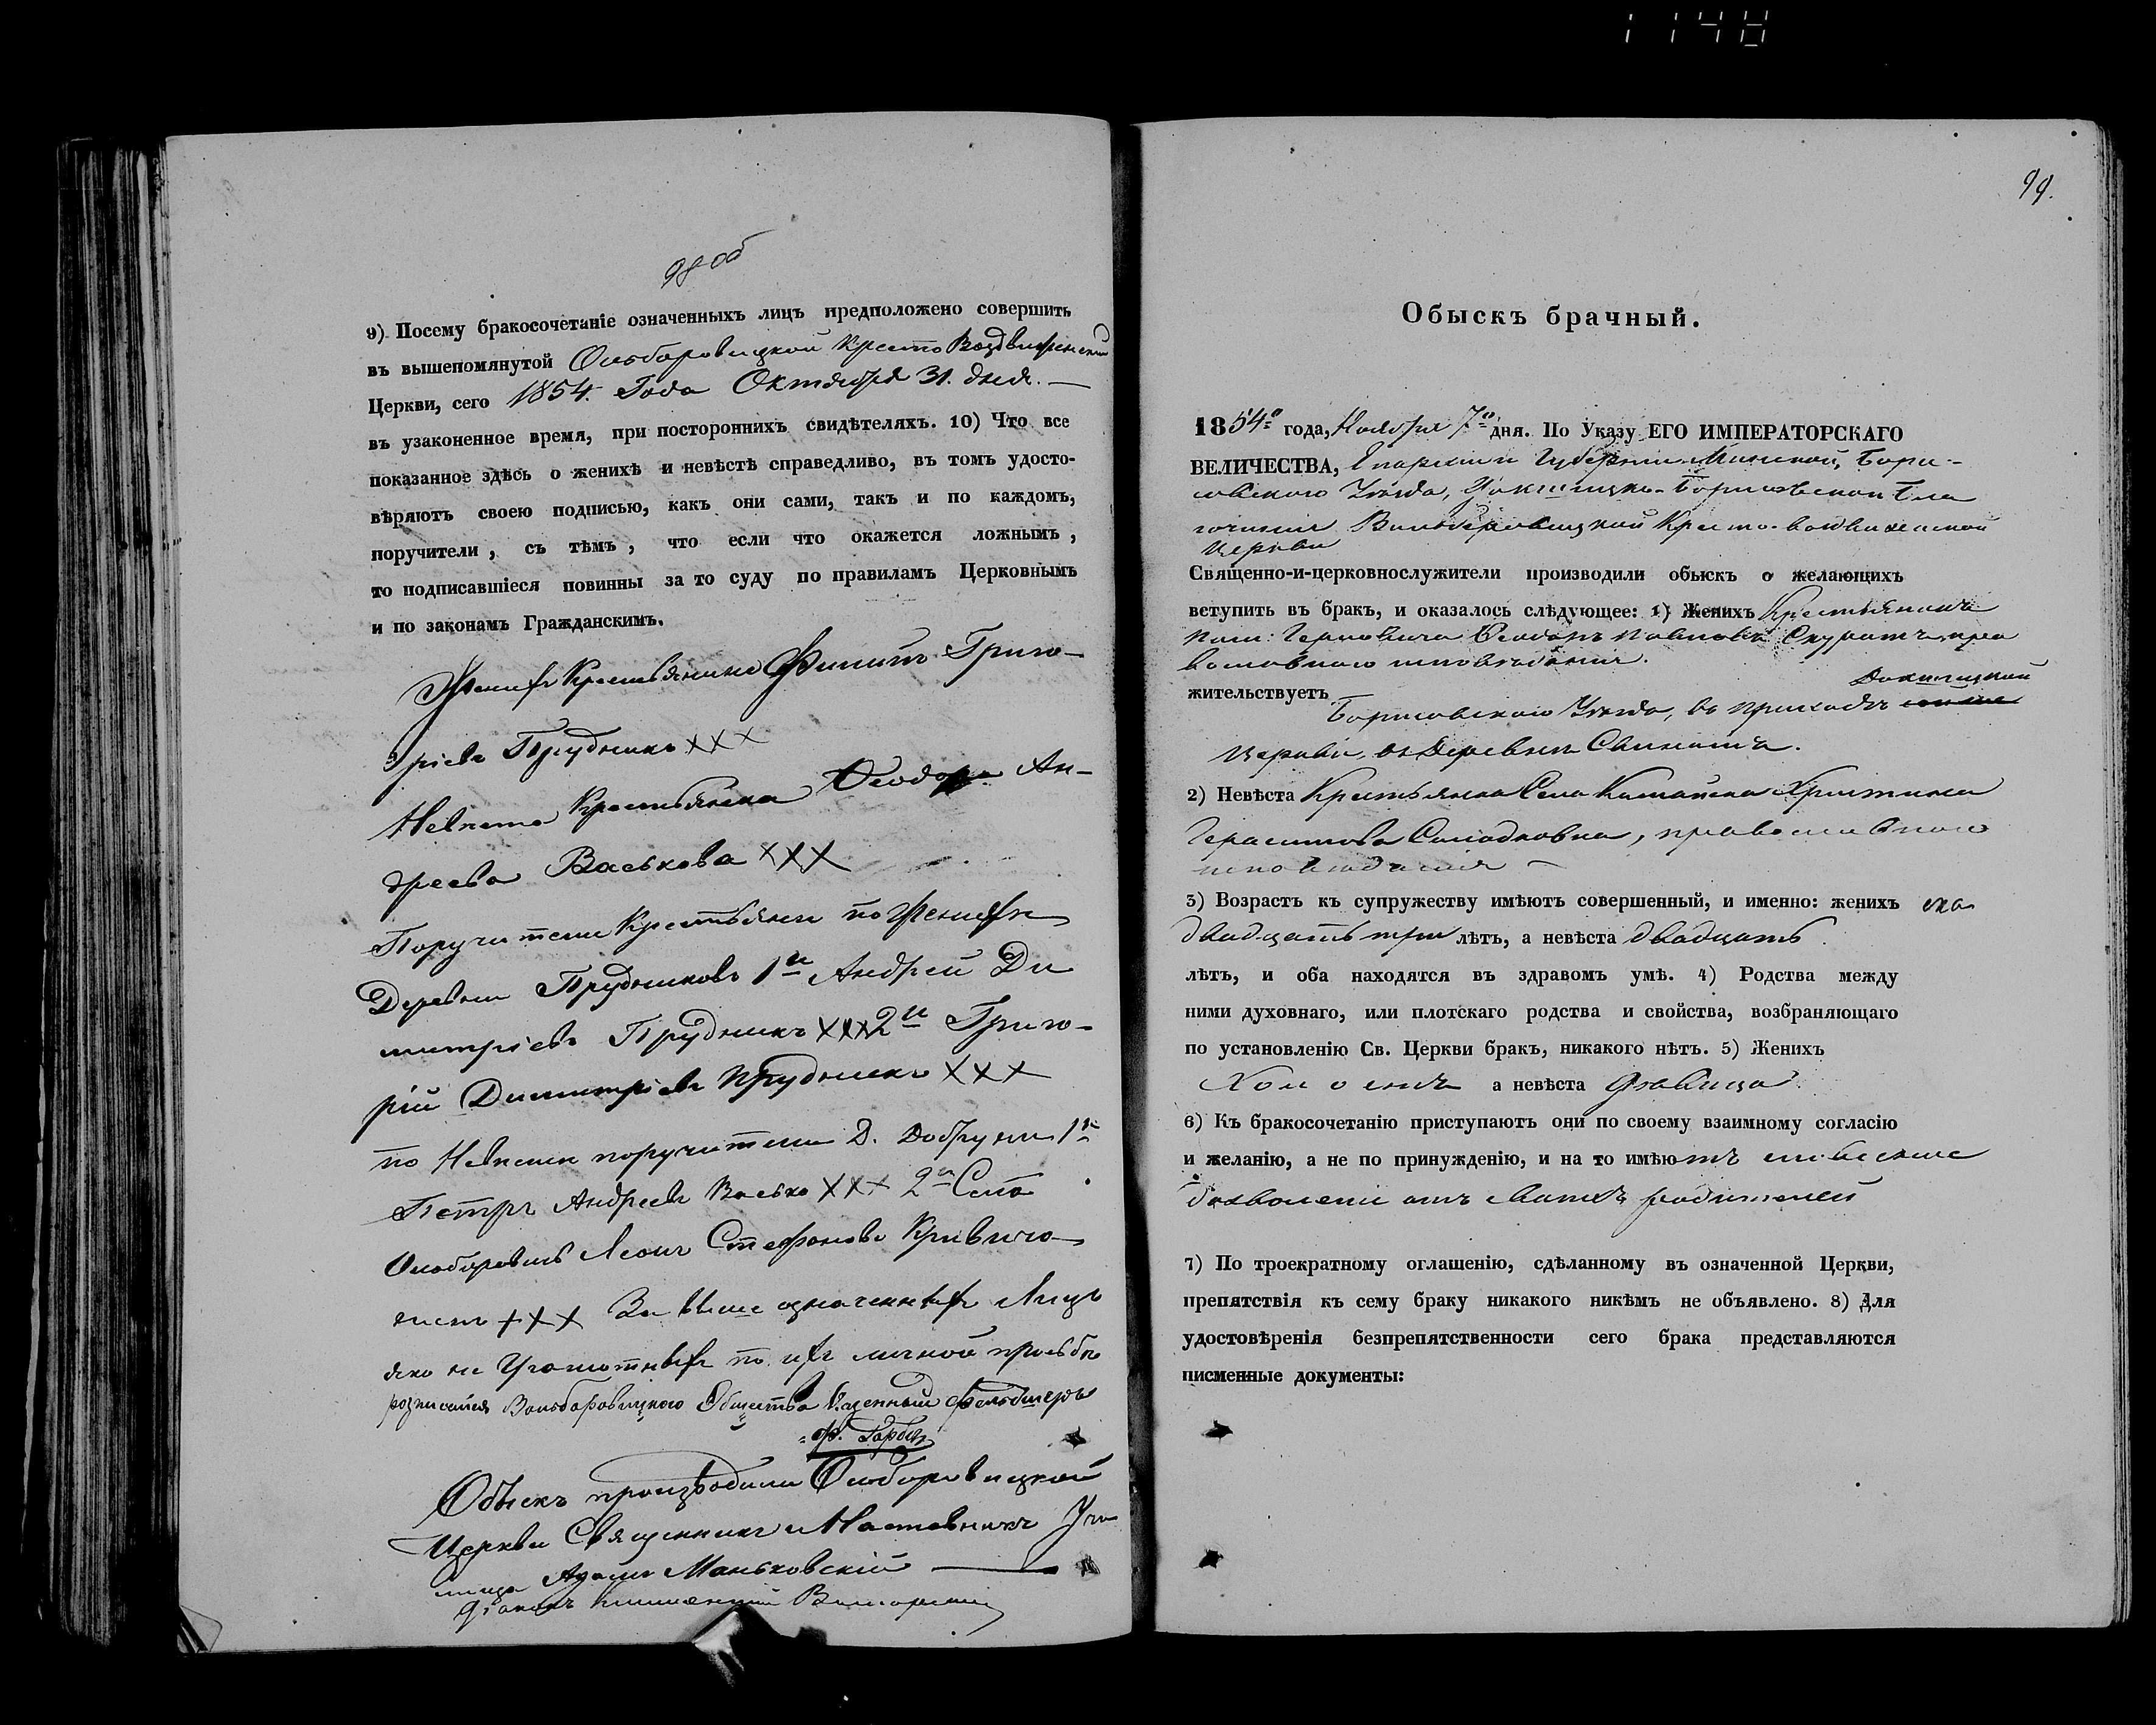 1148
98 об
9) Посему бракосочетаніе означенныхъ лицъ предположено совершить
въ вышепомянутой Ольборовицкой Кресто Воздвиженской
Церкви, сего 1854. Года Октября 31. дня. —
въ узаконенное время, при постороннихъ свидѣтеляхъ. 10) Что все
показанное здѣсь о женихѣ и невѣстѣ справедливо, въ томъ удосто-
вѣряютъ своею подписью, какъ они сами, такъ и по каждомъ,
поручители, съ тѣмъ, что если что окажется ложнымъ,
то подписавшіеся повинны за то суду по правиламъ Церковнымъ
и по законамъ Гражданскимъ.
Женихъ Крестьянинъ Филипъ Григо-
ріевъ Прудникъ ХХХ
Невѣста Крестьянка Ѳеодора Ан-
дреева Васькова ХХХ
Поручители Крестьяни по Женихѣ
Деревни Прудниковъ 1й Андрей Ди
митріевъ Прудникъ ХХХ 2й Григо-
рій Димитріевъ Прудникъ ХХХ
по Невѣстѣ поручители Д. Добруни 1й
Петръ Андреевъ Васько ХХХ 2й Села
Ольборовичъ Леонъ Стефановъ Кривичо
ХХХ За выше означенныхъ Лицъ
яко не Грамотныхъ по ихъ личной прозьбѣ
росписался Вольборовицкого Общества Казенный фельдшеръ
Ф. Горбач
Обыскъ производили Ольборовицкой
Церкви Священникъ и Наставникъ Учи
лища Адамъ Маньковскій
99.
Обыскъ брачный.
1854го года, Ноября 7го дня. По Указу ЕГО ИМПЕРАТОРСКАГО
ВЕЛИЧЕСТВА, Епархіи и Губерніи Минской, Бори-
совского Уѣзда, Докшицко-Борисовскои Бла
гочинія Вольберовицкой Кресто-воздвиженской
Церкви
Священно-и-церковнослужители производили обыскъ о желающихъ
вступить въ бракъ, и оказалось слѣдующее: 1) Женихъ Крестьянинъ
Ѳеодоръ Павловъ Скуратъ, пра
вославного исповѣданія.
жительствуетъ Борисовского Уѣзда, въ приходѣ Докшицкой
Церкви, въ Деревни
2) Невѣста Крестьянка Села Христина
Герасимова Солодковна, православного
исповѣданія —
3) Возрастъ къ супружеству имѣютъ совершенный, и именно: женихъ
двадцать три лѣтъ, а невѣста двадцать
лѣтъ, и оба находятся въ здравомъ умѣ. 4) Родства между
ними духовнаго, или плотскаго родства и свойства, возбраняющаго
по установленію Св. Церкви бракъ, никакого нѣтъ. 5) Женихъ
Холостъ а невѣста дѣвица.
6) Къ бракосочетанію приступаютъ они по своему взаимному согласію
и желанію, а не по принужденію, и на то имѣютъ словесное
дозволеніе отъ своихъ родителей
7) По троекратному оглашенію, сдѣланному въ означенной Церкви,
препятствія къ сему браку никакого никѣмъ не объявлено. 8) Для
удостовѣренія безпрепятственности сего брака представляются
писменные документы: